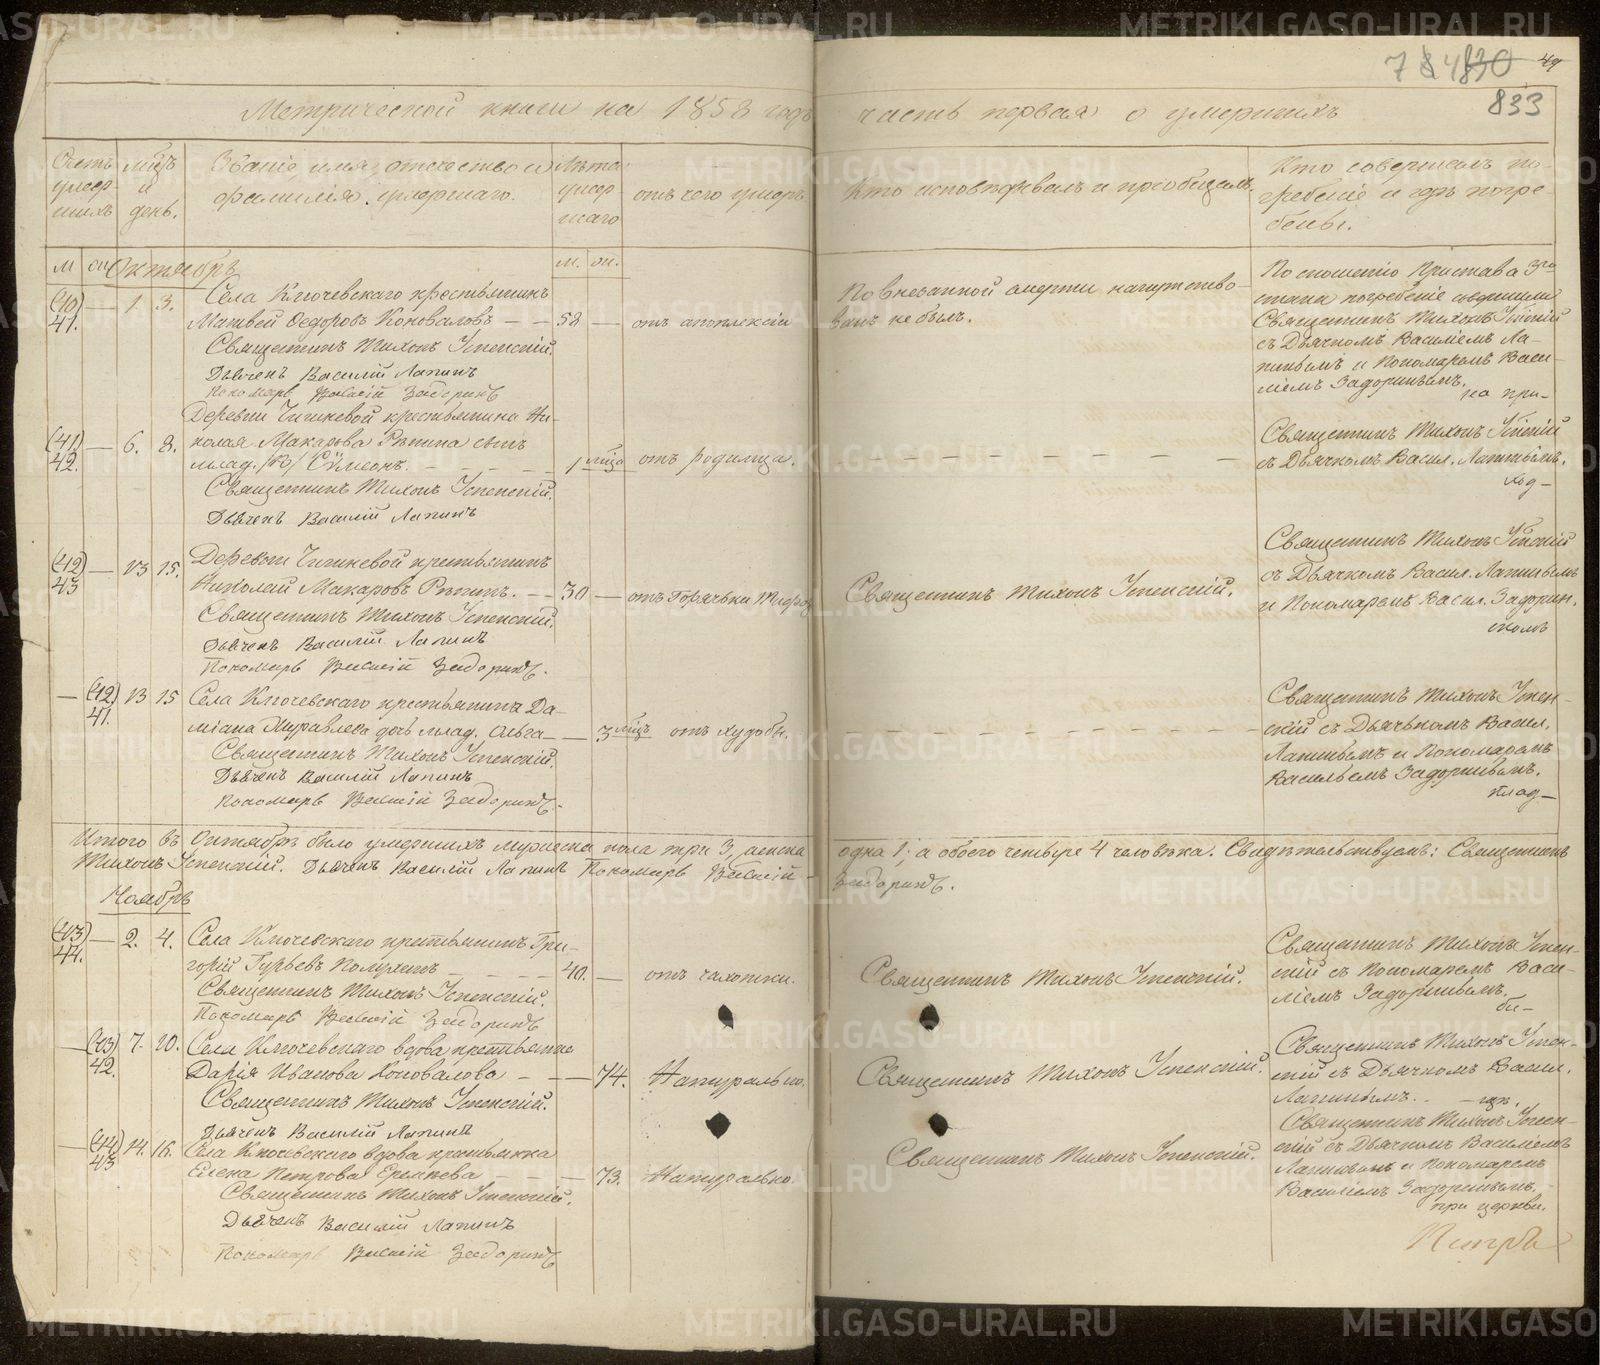 7 84 830 49
833
Метрической книги на 1858 годъ часть первая о умершихъ
Счетъ умер-шихъ
Мѣцъ и день.
Званіе, имя, отечество и фамилія умершаго.
Лѣта умер-шаго
отъ чего умеръ
Кто исповѣдывалъ и пріобщалъ.
Кто совершалъ по-гребеніе и гдѣ погре-бены.
М
Октябрь
м.
(40) 41. — 1 3.
Села Ключевскаго крестьянинъ
Матвей Ѳедоровъ Коноваловъ — — 58 — отъ апоплексіи
Священникъ Тихонъ Успенскій.
Дьячекъ Василій Лапинъ
Пономарь Василій Задоринъ
По внезапной смерти напутство-
ванъ не былъ.
По сношенію Пристава 3го
стана погребеніе совершили
Священникъ Тихонъ Успенскій
съ Дьячкомъ Василіемъ Ла-
пинымъ и Пономаремъ Васи-
ліемъ Задоринымъ.
на при-
(41) 42. — 6. 8.
Деревни Чепчеговой крестьянина Ни-
колая Макарова сынъ
млад. Сѵмеонъ. — 1 мѣца отъ родимца.
Священникъ Тихонъ Успенскій.
Дьячекъ Василій Лапинъ
Священникъ Тихонъ Успенскій
съ Дьячкомъ Васил. Лапинымъ.
ход-
(42) 43 — 13 15.
крестьянинъ
Николай Макаровъ — — 30 — отъ Горячки
Священникъ Тихонъ Успенскій.
Дьячекъ Василій Лапинъ
Пономарь Василій Задоринъ.
Священникъ Тихонъ Успенскій.
Священникъ Тихонъ Успенскій
съ Дьячкомъ Васил. Лапинымъ
и Пономаремъ Васил. Задорин.
— (42) 41. 13 15
Села Ключевскаго крестьянина Да-
міана Журавлева дочь млад. Ольга — — 3 мѣц. отъ худобы.
Священникъ Тихонъ Успенскій.
Дьячекъ Василій Лапинъ
Пономарь Василій Задоринъ.
Священникъ Тихонъ Успен-
скій съ Дьячкомъ Васил.
Лапинымъ и Пономаремъ
Васильемъ Задоринымъ.
клад-
Итого въ Октябрѣ было умершихъ мужеска пола три 3, женска одна 1; а обоего четыре 4 человѣка. Свидѣтельствуемъ: Священникъ
Тихонъ Успенскій. Дьячекъ Василій Лапинъ Пономарь Василій Задоринъ.
Ноябрь
(43) 44. — 2. 4.
Села Ключевскаго крестьянинъ Гри-
горій Гурьевъ — 40. — отъ чахотки.
Священникъ Тихонъ Успенскій.
Пономарь Василій Задоринъ
Священникъ Тихонъ Успенскій.
Священникъ Тихонъ Успен-
скій съ Пономаремъ Васи-
ліемъ Задоринымъ.
би-
— (43) 42. 7. 10.
Села Ключевскаго вдова крестьянка
Дарія Иванова Коновалова — — 74. Натурально.
Священникъ Тихонъ Успенскій.
Дьячекъ Василій Лапинъ
Священникъ Тихонъ Успенскій.
Священникъ Тихонъ Успен-
скій съ Дьячкомъ Васил.
Лапинымъ.
— (44) 43 14. 16.
Села Ключевскаго вдова крестьянка
Елена Петрова — 73. Натурально.
Священникъ Тихонъ Успенскій.
Дьячекъ Василій Лапинъ
Пономарь Василій Задоринъ
Священникъ Тихонъ Успенскій.
Священникъ Тихонъ Успен-
скій съ Дьячкомъ Василіемъ
Лапинымъ и Пономаремъ
Василіемъ Задоринымъ.
при церкви.
METRIKI.GASO-URAL.RU